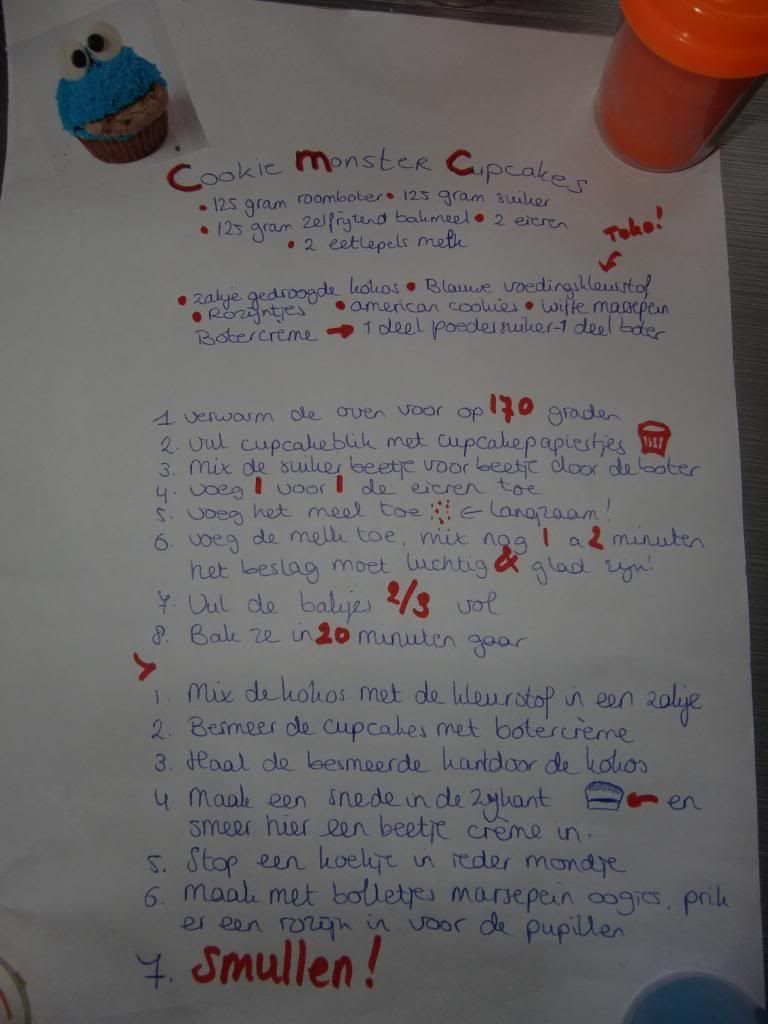 Cookie Monster Cupcakes
• 125 gram roomboter • 125 gram suiker
• 125 gram zelfrijzend bakmeel • 2 eieren
• 2 eetlepels melk
Toko!
• zakje gedroogde kokos • Blauwe voedingskleurstof
• Rozijntjes • american cookies • witte marsepein
Botercrème → 1 deel poedersuiker - 1 deel boter
1 verwarm de oven voor op 170 graden
2. vul cupcakeblik met cupcakepapiertjes
3. Mix de suiker beetje voor beetje door de boter
4. voeg 1 voor 1 de eieren toe
5. voeg het meel toe ← Langzaam!
6. voeg de melk toe, mix nog 1 a 2 minuten
het beslag moet luchtig & glad zijn!
7. Vul de bakjes 2/3 vol
8. Bak ze in 20 minuten gaar
>
1. Mix de kokos met de kleurstof in een zakje
2. Besmeer de cupcakes met botercrème
3. Haal de besmeerde kant door de kokos
4. Maak een snede in de zijkant ← en
smeer hier een beetje crème in.
5. Stop een koekje in ieder mondje
6. Maak met bolletjes marsepein oogjes, prik
er een rozijn in voor de pupillen
7. Smullen!